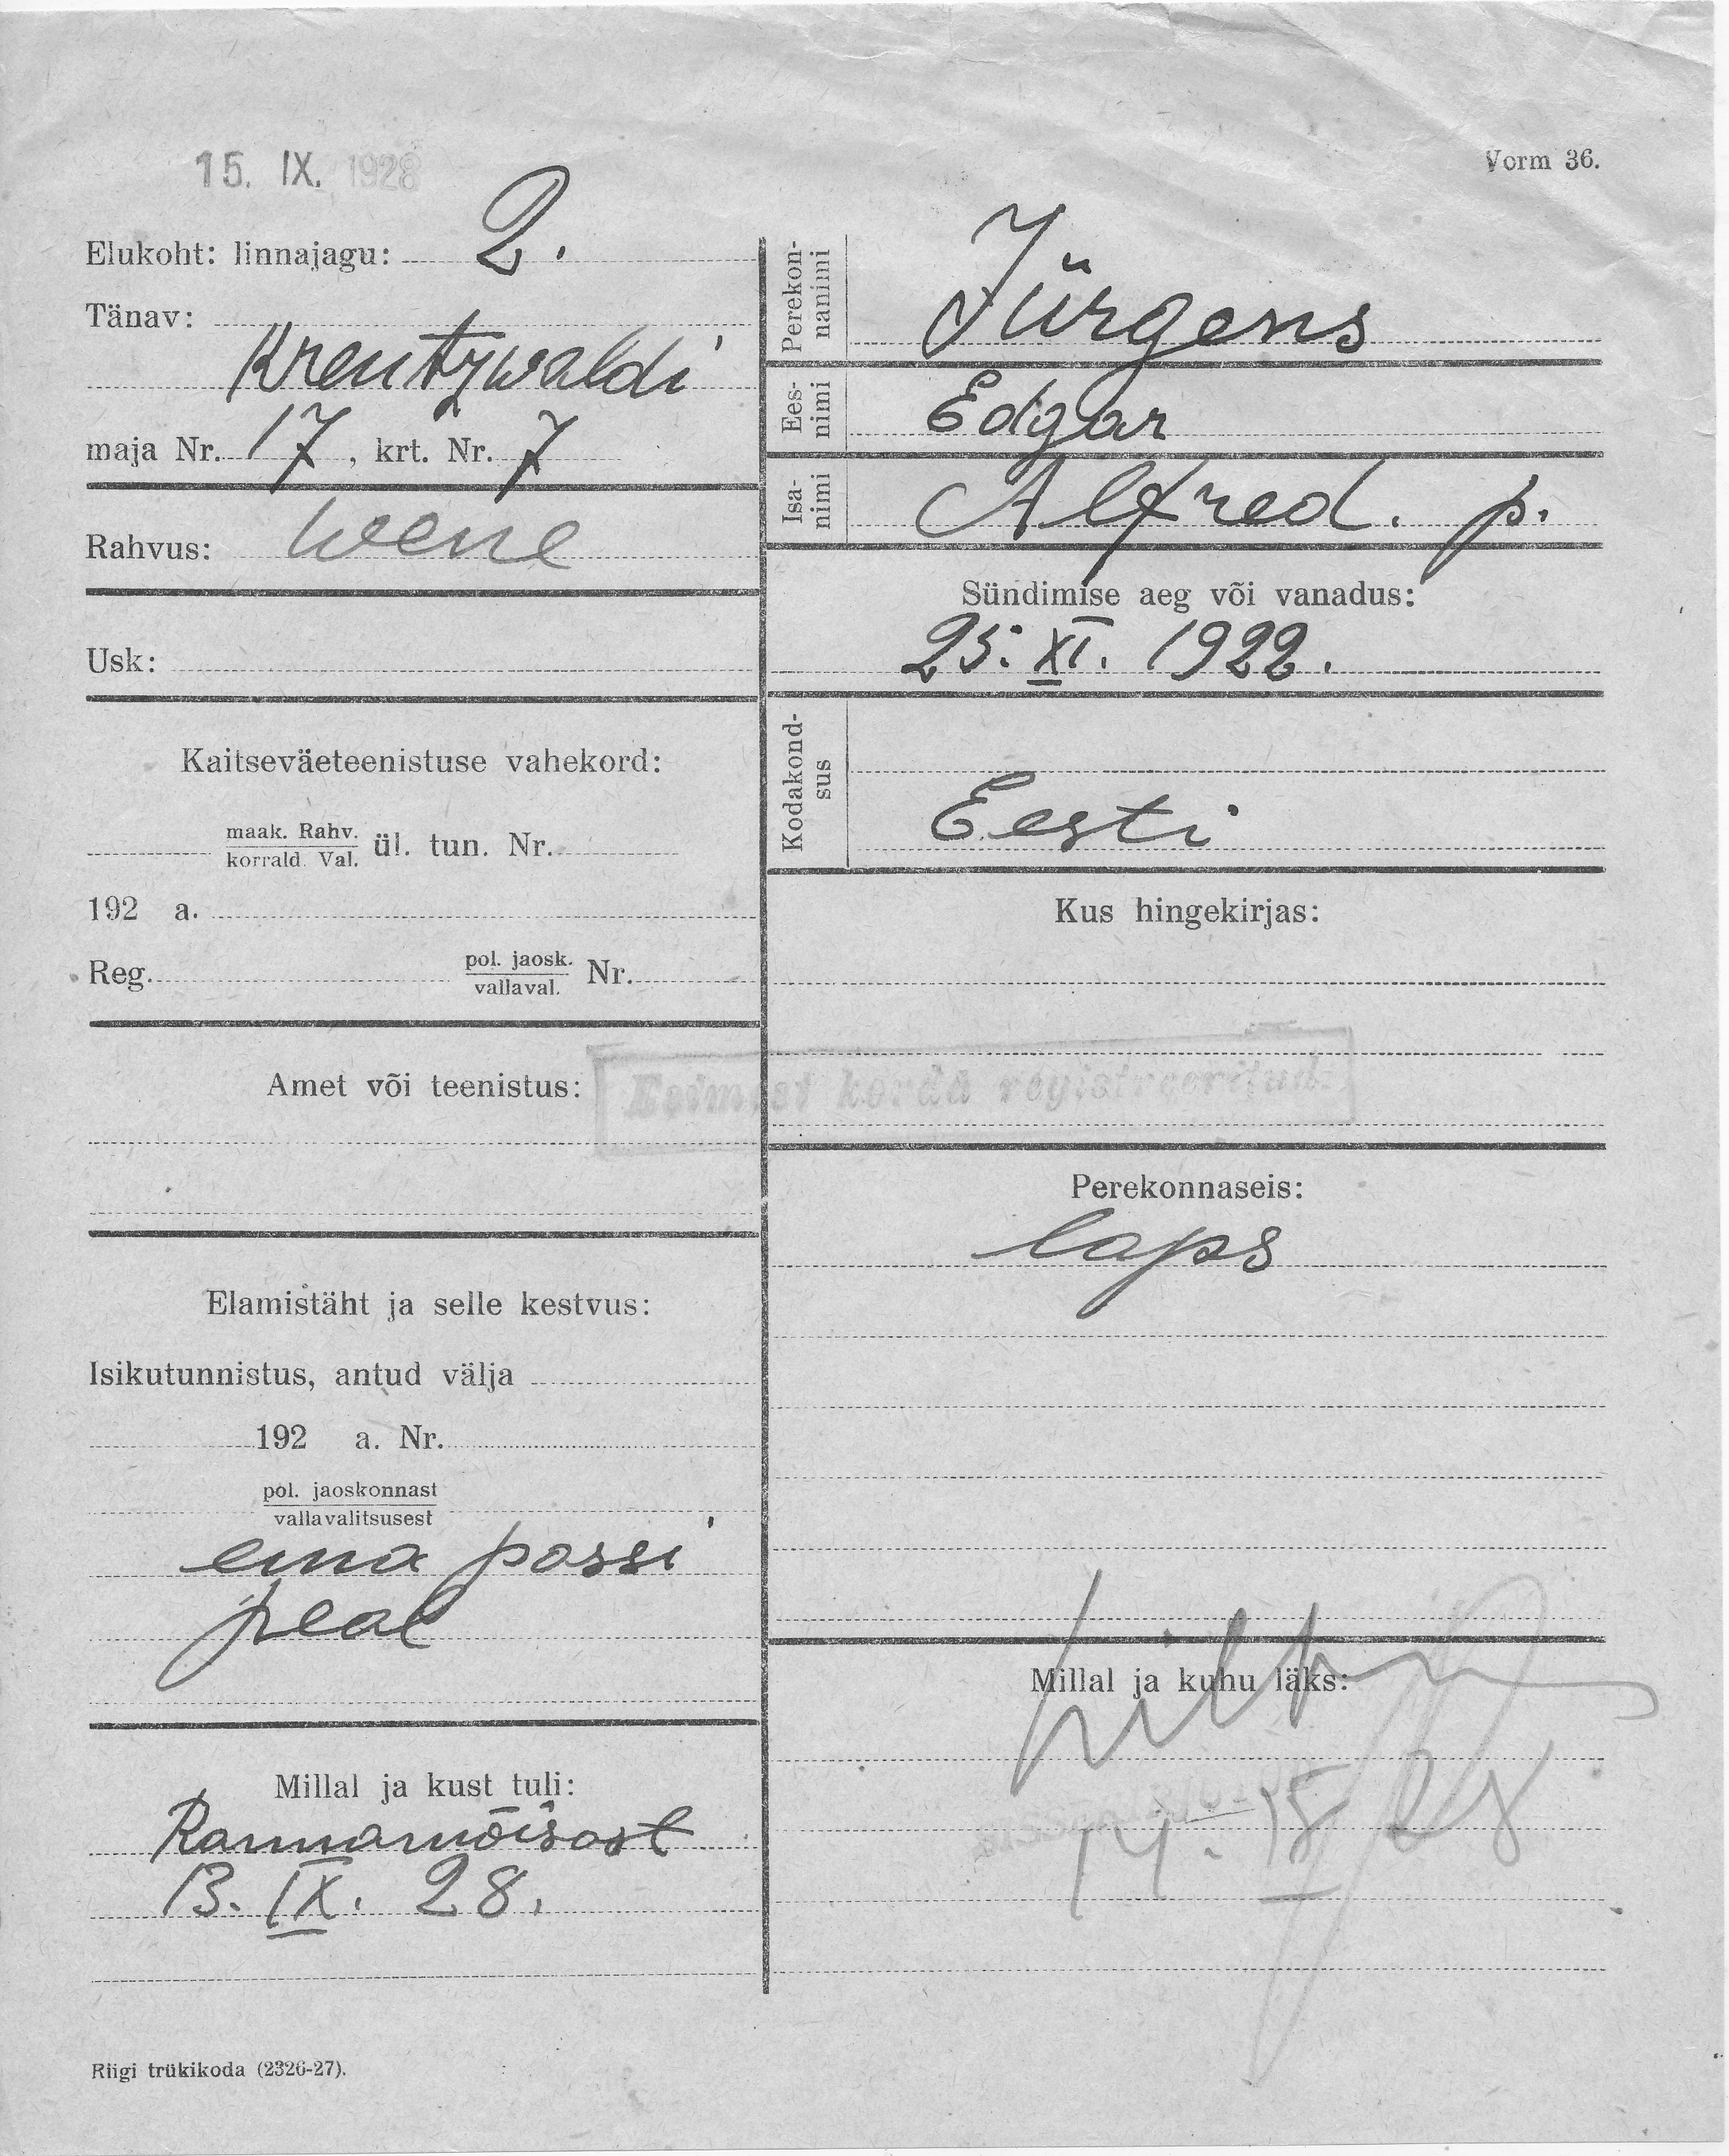 15. IX. 1928
Vorm 36.
Elukoht: linnajagu: 2.
Tänav:
Kreutzwaldi
maja Nr. 17, krt. Nr. 7
Rahvus: wene
Usk:
Kaitseväeteenistuse vahekord:
maak. Rahv.
korrald. Val.
ül. tun. Nr.
192 a.
Reg. pol. jaosk. Nr.
vallaval.
Amet või teenistus:
Elamistäht ja selle kestvus:
Isikutunnistus, antud välja
192 a. Nr.
pol. jaoskonnast
vallavalitsusest
ema passi
peal
Millal ja kust tuli:
Rannamõisast
13. IX. 28.
Riigi trükikoda (2326-27).
Perekon-
nanimi
Jürgens
Ees-
nimi
Edgar
Isa-
nimi
Alfred. p.
Sündimise aeg või vanadus:
25. XI. 1922.
Kodakond-
sus
Eesti
Kus hingekirjas:
Esimest korda registreeritud.
Perekonnaseis:
laps
Millal ja kuhu läks: